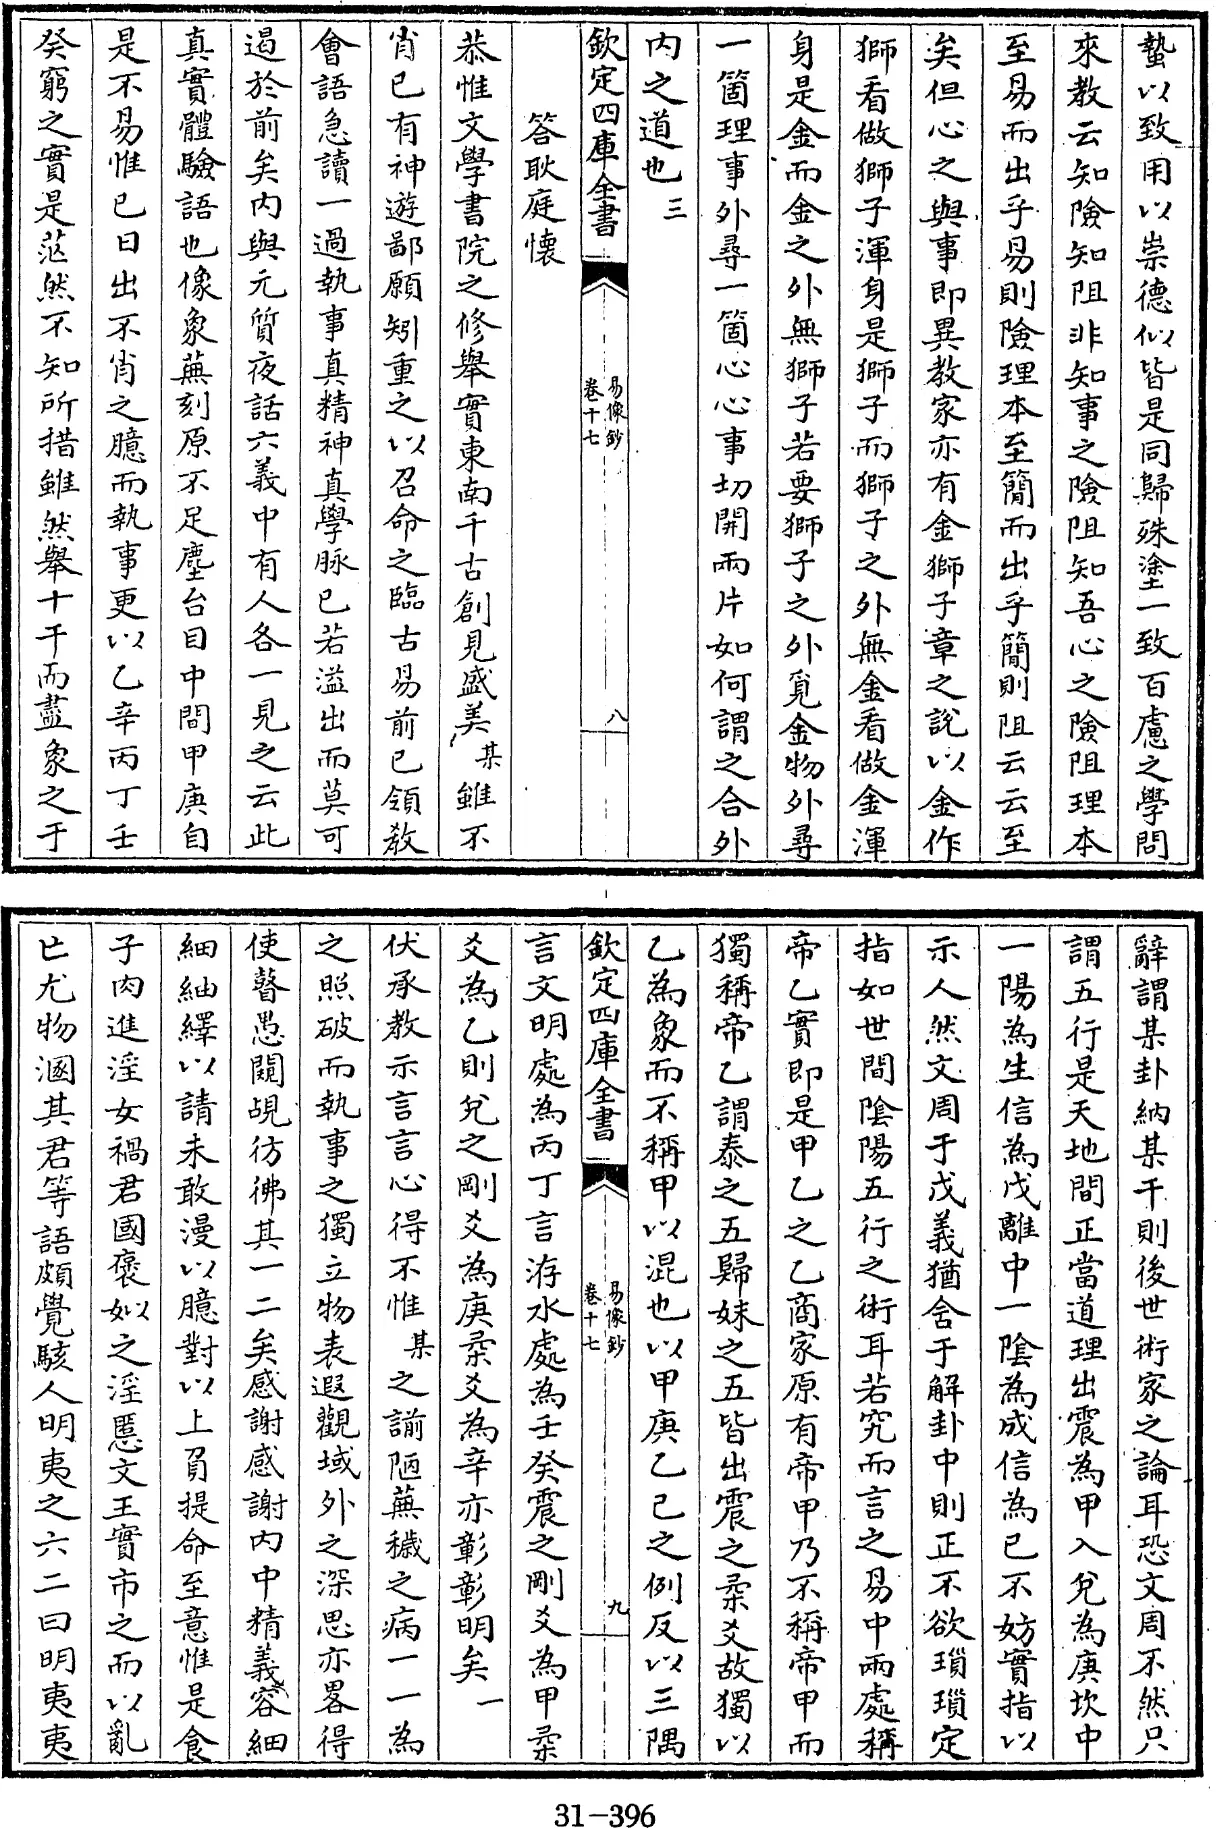 蟄以致用以崇德似皆是同歸殊塗一致百慮之學問
來教云知險知阻非知事之險阻知吾心之險阻理本
至易而出乎易則險理本至簡而出乎簡則阻云云至
矣但心之與事即異教家亦有金獅子章之說以金作
獅看做獅子渾身是獅子而獅子之外無金看做金渾
身是金而金之外無獅子若要獅子之外覓金物外尋
一箇理事外尋一箇心心事切開兩片如何謂之合外
內之道也三
欽定四庫全書 易像鈔 卷十七 八
答耿庭懷
恭惟文學書院之修舉實東南千古創見盛美某雖不
肖已有神遊鄙願矧重之以召命之臨古易前已領教
會語急讀一過執事真精神真學脉已若溢出而莫可
遏於前矣內與元質夜話六義中有人各一見之云此
真實體驗語也像象蕪刻原不足塵台目中間甲庚自
是不易惟巳日出不肖之臆而執事更以乙辛丙丁壬
癸窮之實是茫然不知所措雖然舉十干而盡象之于
辭謂某卦納某干則後世術家之論耳恐文周不然只
謂五行是天地間正當道理出震為甲入兌為庚坎中
一陽為生信為戊離中一陰為成信為已不妨實指以
示人然文周于戊義猶舍于解卦中則正不欲瑣瑣定
指如世間陰陽五行之術耳若究而言之易中兩處稱
帝乙實即是甲乙之乙商家原有帝甲乃不稱帝甲而
獨稱帝乙謂泰之五歸妹之五皆出震之柔爻故獨以
乙為象而不稱甲以混也以甲庚乙己之例反以三隅
欽定四庫全書 易像鈔 卷十七 九
言文明處為丙丁言洊水處為壬癸震之剛爻為甲柔
爻為乙則兌之剛爻為庚柔爻為辛亦彰彰明矣一
伏承教示言言心得不惟某之謭陋蕪穢之病一一為
之照破而執事之獨立物表遐觀域外之深思亦畧得
使瞽愚闚覘彷彿其一二矣感謝感謝內中精義容細
細紬繹以請未敢漫以臆對以上負提命至意惟是食
子肉進淫女禍君國褒姒之淫慝文王實市之而以亂
亡尤物溷其君等語頗覺駭人明夷之六二曰明夷夷
31-396